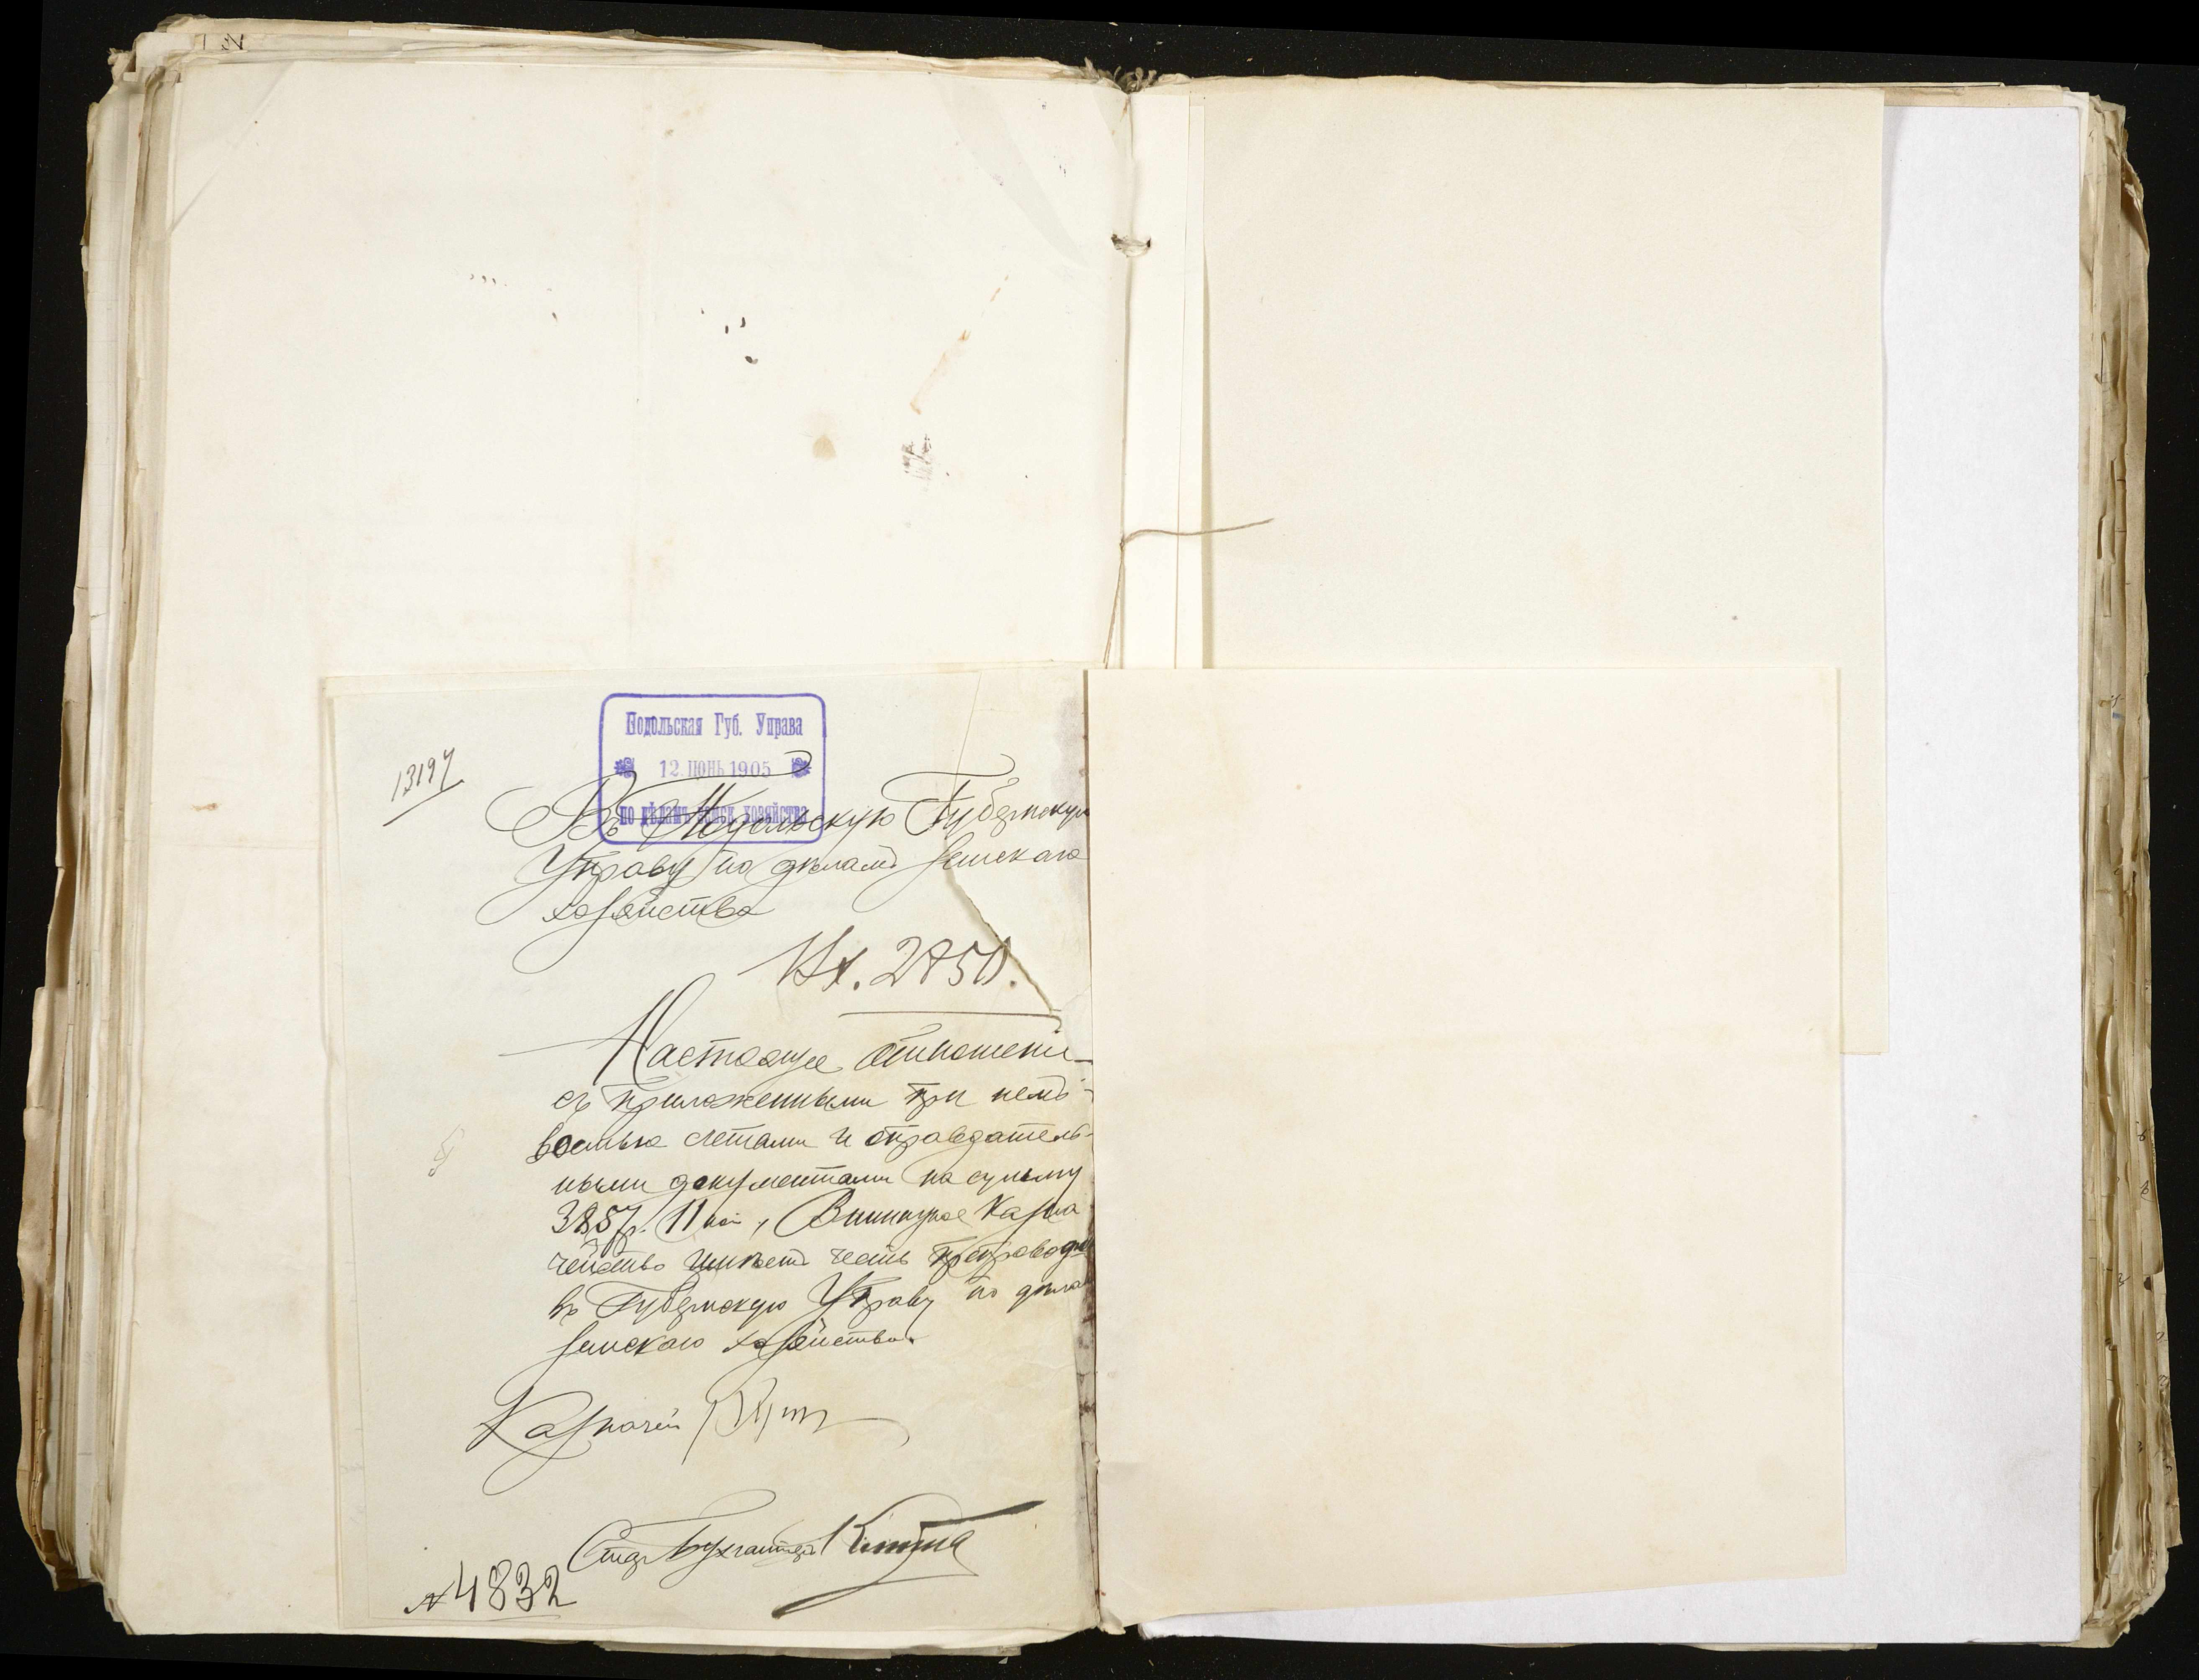 Подольская Губ. Управа
12. ІЮНЬ 1905
по дѣламъ земск. хозяйства
13197
Въ Подольскую Губернскую
Управу по дѣламъ земскаго
хозяйства
Вх. 2850.
Настоящее отношені-
съ приложенными при немъ
восмью счетами и оправдатель-
ными документами на сумму
3857 р. 11 коп, Винницкое Казна
чейство имѣетъ честь препроводи
въ Губернскую Управу по дѣла
земскаго хозяйства.
Казначей
Стар. Бухгалтеръ
№ 4832